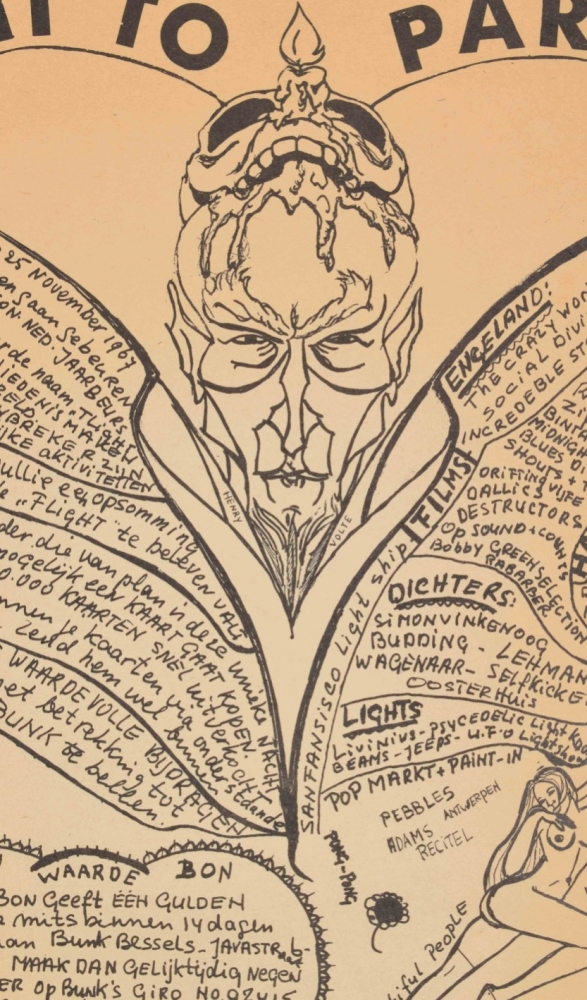 TO PAR
25 NOVEMBER 1967
en gaan gebeuren
NED. JAARBEURS
rde naam "FLIGHT
ZIJN
AKTIVITEITEN
ullie een opsomming
e "FLIGHT" te beleven valt
der die van plan is deze unieke
mogelijk een KAART GAAT KOPEN
0.000 KAARTEN SNEL uitverkocht
nnen je kaarten via onderstaande
zend hem wel binnen
WAARDEVOLLE BIJDRAGEN
met betrekking tot
BUNK te bellen.
HENRY
VOLTE
ENGELAND:
THE CRAZY WOR
SOCIAL DIVI
INCREDEBLE ST
MIDNIGHT
BLUES
SHOUTS +
DRIFTING VIJF
DALLICS
DESTRUCTORS
OP SOUND +
BOBBY GREEN SELECTION
RABARBER
FILMS
SANFANSISCO Light ship
DICHTERS:
SIMONVINKENOOG
BUDDING - LEHMAN
WAGENAAR - SELFKICKE
OOSTERHUIS
LIGHTS
LIVINIUS - PSYCEDELIC Light
BEAMS - JEEPS - U.F.O Lightshow
POP MARKT + PAINT-IN
PEBBLES
ANTWERPEN
ADAMS
RECITEL
PING-PONG
iful PEOPLE
WAARDE BON
BON GEEFT ÉÉN GULDEN
mits binnen 14 dagen
aan Bunk Bessels - JAVASTR
MAAK DAN GELIJKTIJDIG NEGEN
ER OP BUNK'S GIRO NO.